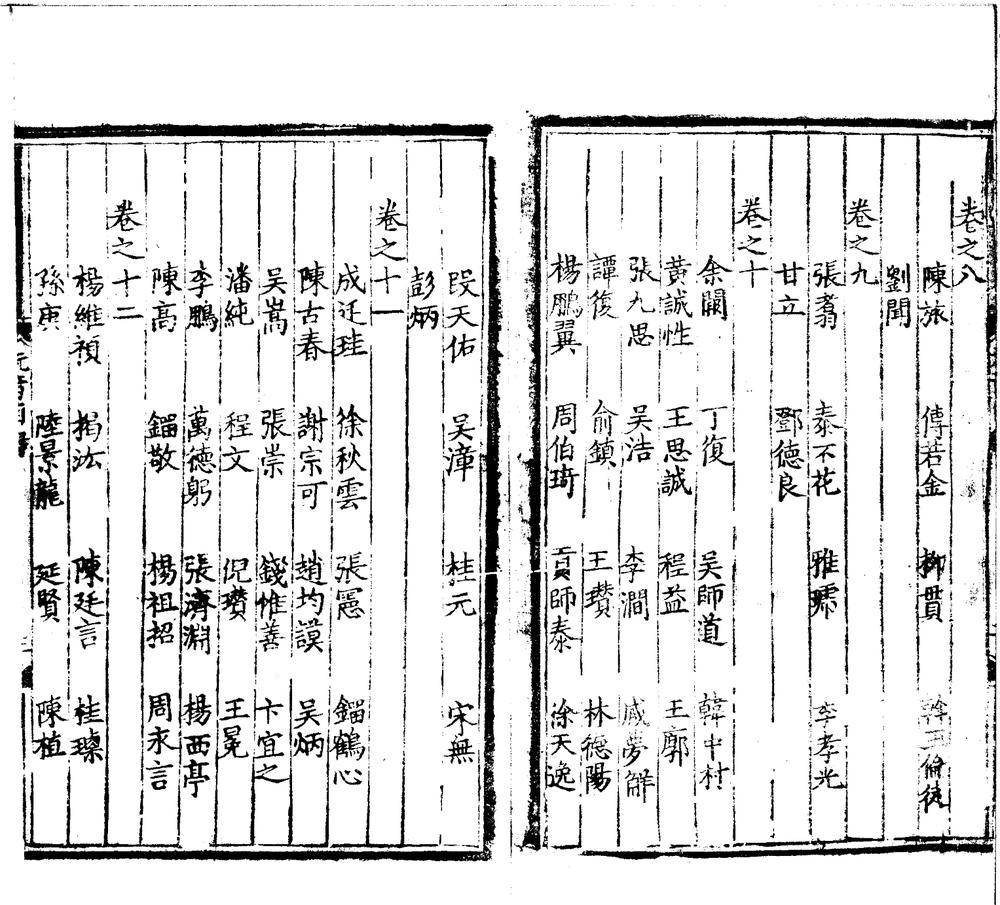 卷之八
陳旅 傅若金 柳貫 斡玉倫徒
劉聞
卷之九
張翥 泰不花 雅琥 李孝光
甘立 鄧德良
卷之十
余闕 丁復 吴師道 韓中村
黄誠性 王思誠 程益 王廓
張九思 吴浩 李澗 咸夢觧
譚復 俞鎮 王瓚 林德陽
楊鵬翼 周伯琦 貢師泰 徐天逸
段天佑 吴漳 桂元 宋無
彭炳
卷之十一
成廷珪 徐秋雲 張憲 錙鶴心
陳古春 謝宗可 趙均謨 吴炳
吴嵩 張崇 錢惟善 卞宜之
潘純 程文 倪瓚 王冕
李鵬 萬德躬 張濟淵 楊西亭
陳高 錙敬 楊祖招 周永言
卷之十二
楊維禎 揭汯 陳廷言 桂瓈
孫庚 陸景龍 延賢 陳植